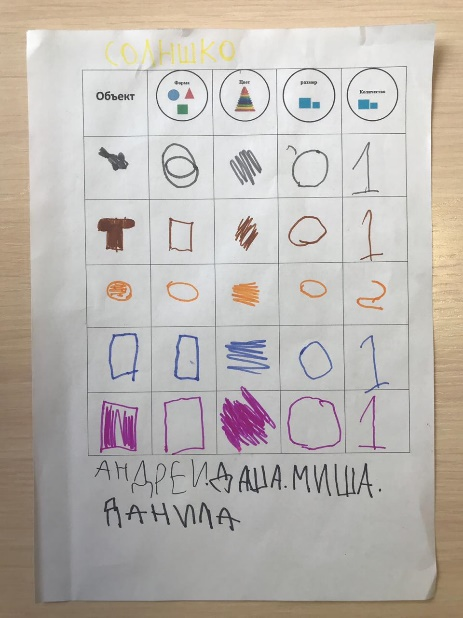 СОЛНШКО
Объект Форма Цвет размер Количество
1
1
2
1
1
АНДРЕЙ.ДАША.МИША.
ДАНИЛА